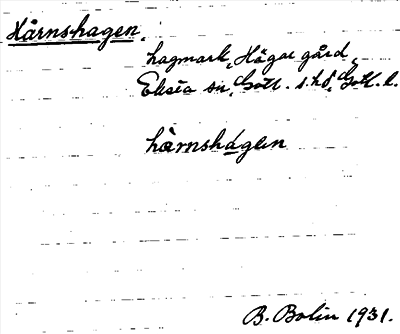 Härnshagen.
hagmark, Hägar gård,
Eksta sn, Gotl. s. hd, Gotl. l.
hä̀rnshágen
B. Bolin 1931.